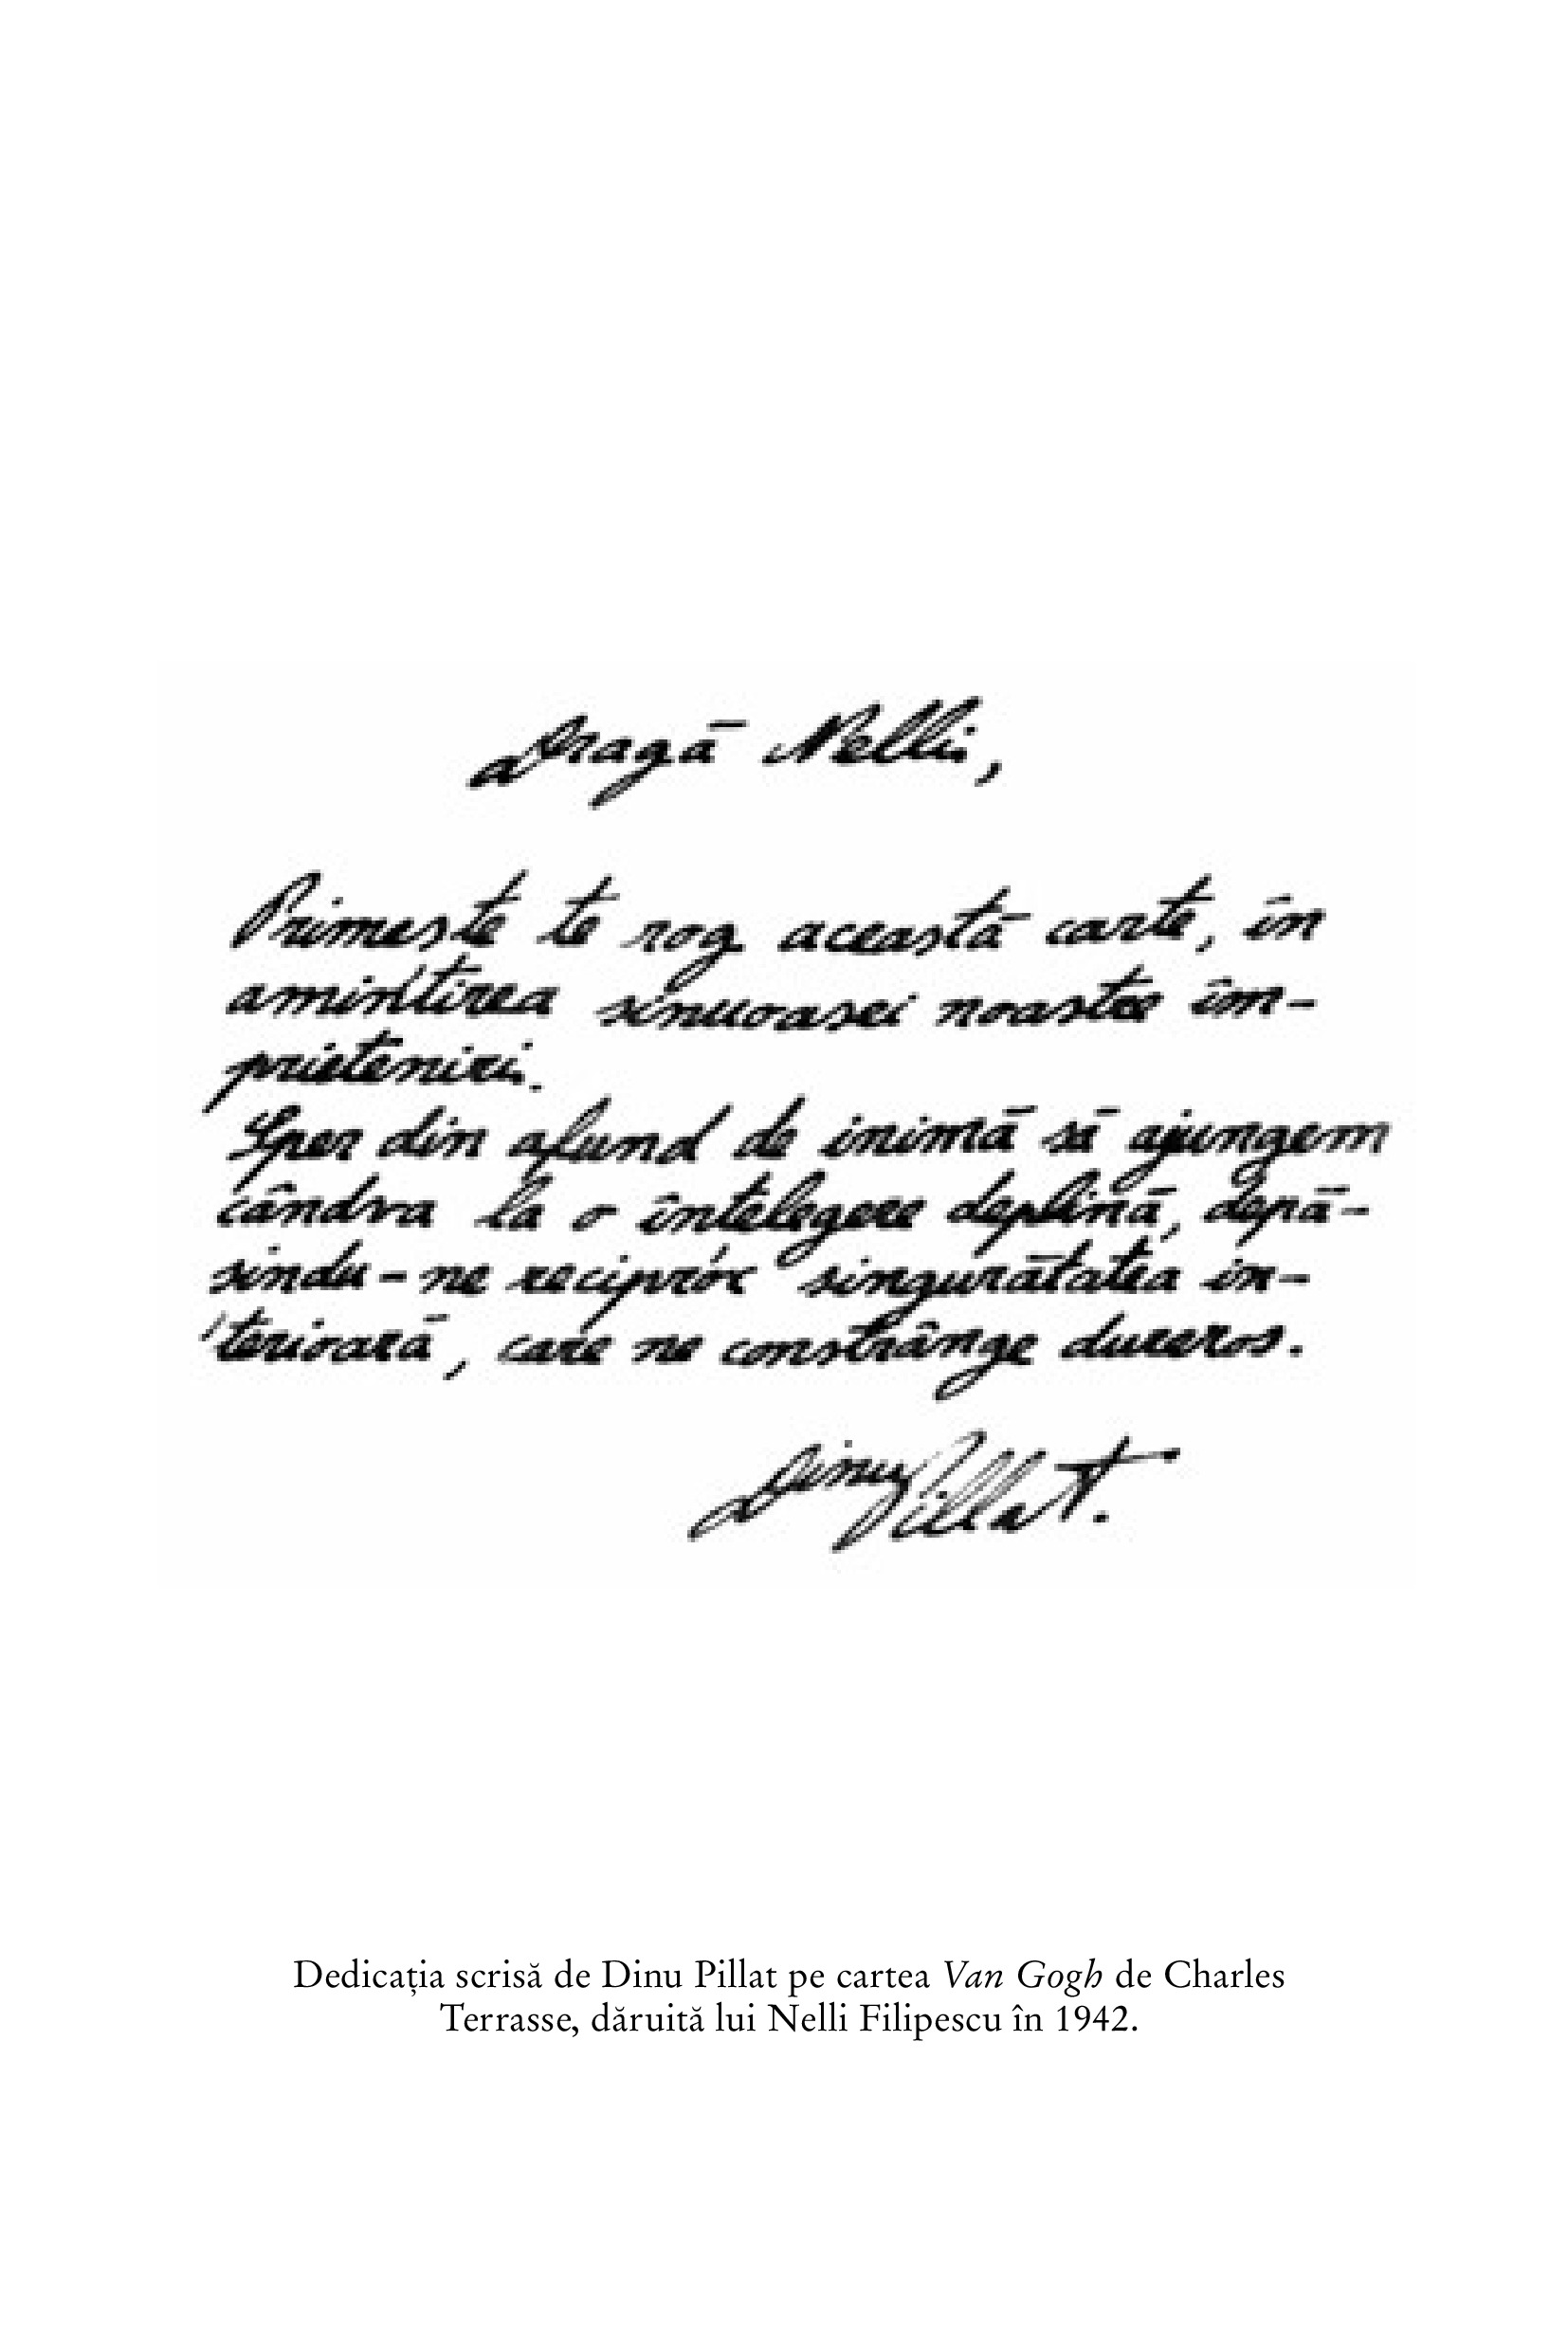 Dragă Nelli,
Primeste te rog această carte, în
amintirea sinuoasei noastre îm-
prieteniri.
Sper din afund de inimă să ajungem
cândva la o întelegere deplină, depă-
sindu-ne reciproc singurătatea in-
terioară, care ne constrânge dureros.
Dinu Pillat.
Dedicația scrisă de Dinu Pillat pe cartea Van Gogh de Charles
Terrasse, dăruită lui Nelli Filipescu în 1942.